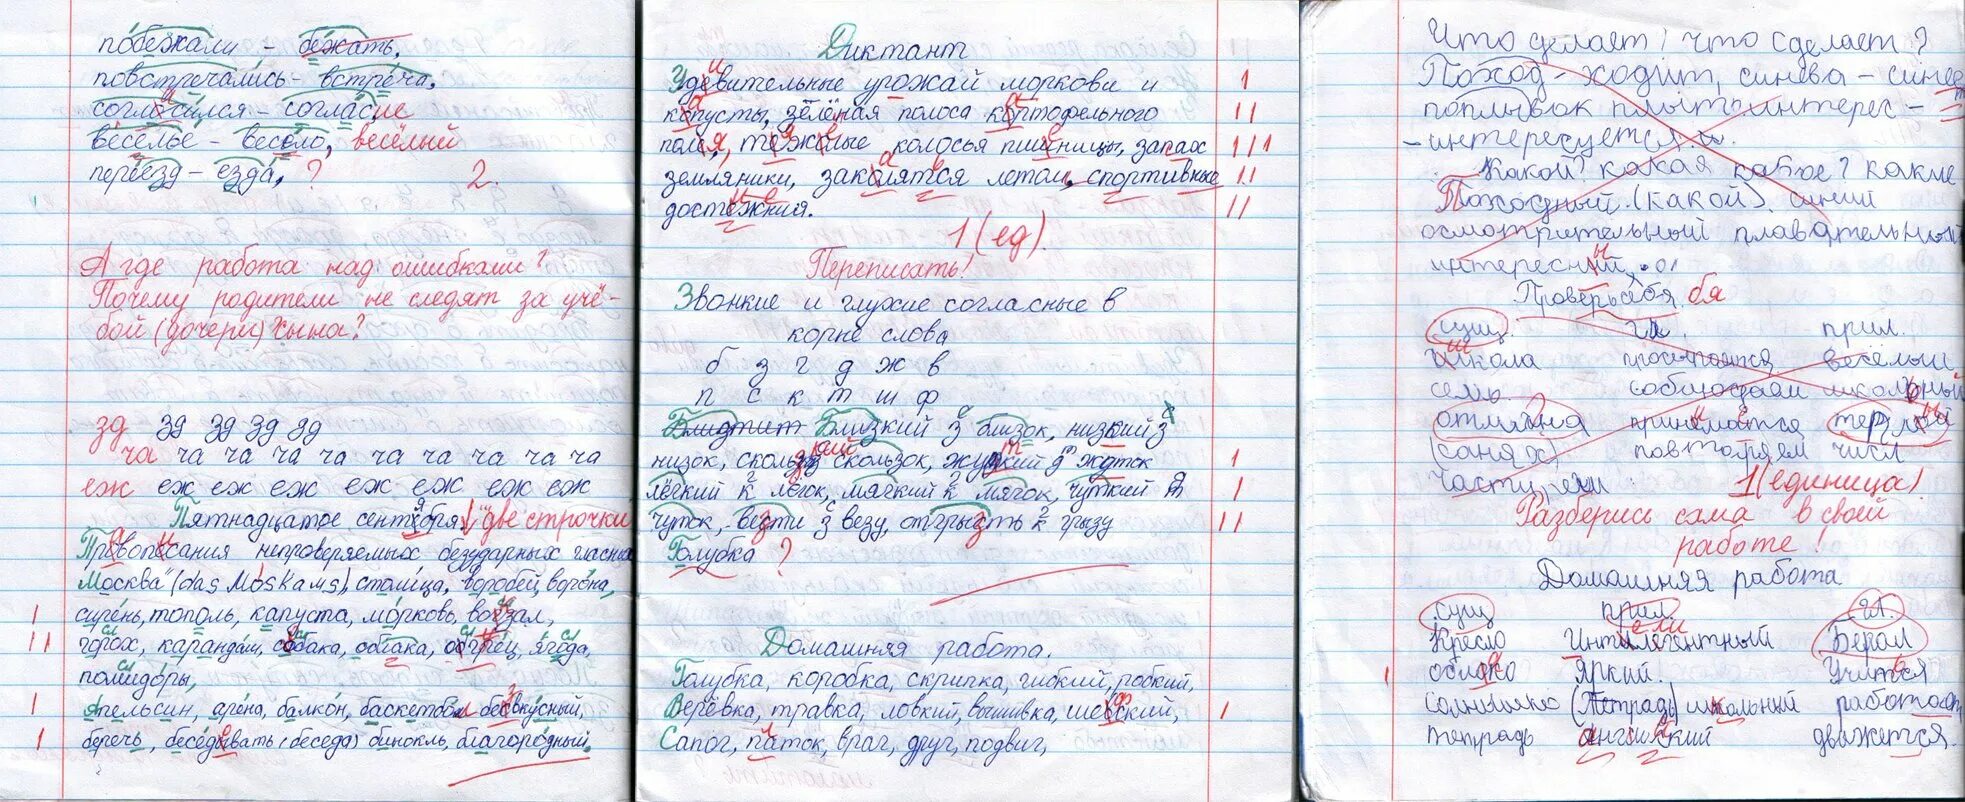 побежали - бежать,
повстречались - встреча,
согласился - согласие
веселье - весело, весёлый
переезд - езда, ? 2.
А где работа над ошибками?
Почему родители не следят за учё-
бой (дочери) сына?
зд зд зд зд зд
ча ча ча ча ча ча ча ча ча ча
еж еж еж еж еж еж еж еж
Пятнадцатое сентября. две строчки
Правописания непроверяемых безударных гласных
Москва (das Moskaus), столица, воробей, ворона,
сирень, тополь, капуста, морковь, вокзал,
горох, карандаш, собака, огурец, ягода,
помидоры,
Апельсин, арена, балкон, баскетбол безвкусный,
беречь, беседывать (беседа) бинокль, благородный.
Диктант
Удевительные урожай моркови и
копусты, зелёная полоса кортофельного
поля, колосья пшеницы, запах
земляники, заколятся летом, спортивные
достежния.
1 (ед).
Переписать!
Звонкие и глухие согласные в
корне слова
б з г д ж в
п с к т ш ф
Близкий з близок, низкий з
низок, скользкий скользок, жуткий жуток
лёгкий к лёгок, мягкий к мягок, чуткий т
чуток, везти з везу, отгрызть к грызу
Голубка ?
Домашняя работа.
Голубка, коробка, скрипка, гибкий, робкий,
Верёвка, травка, ловкий, вышивка,
Сапог, паток, враг, друг, подвиг,
Что делает? что сделает?
Поход - ходит, синева - синеет
поплывок плыть интерес -
- интересуется.
Какой? какая какое? какие
Походный (какой). синий
осмотрительный плавательный
интересный
Проверь себя. бя
сущ. гл. прил.
школа просыпается весёлый
семь. соблюдаем школьный
отмяна принимается
(санях) повторяем числ
части, ели 1 (единица).
Разберись сама в своей
работе!
Домашняя работа
сущ прил. гл.
Кресло Интилегентный Бегал
облоко Яркий. Учится
солнышко (Тетрадь) школьний работает
тетрадь английский движется.